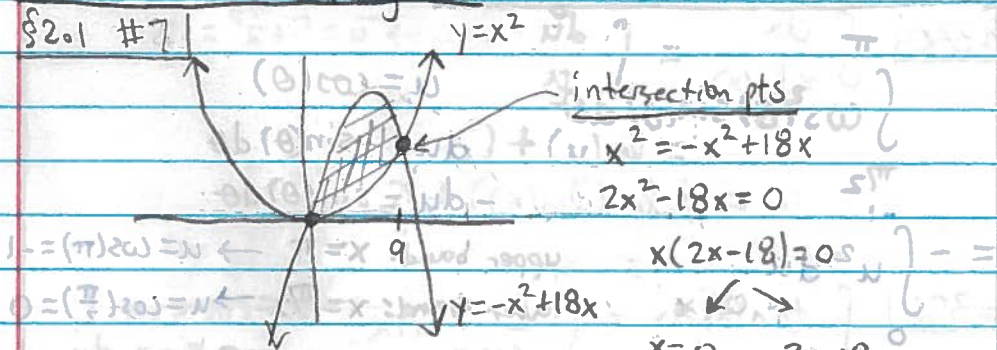 §2.1 #7
y=x²
intersection pts
x²=-x²+18x
2x²-18x=0
9
x(2x-18)=0
y=-x²+18x